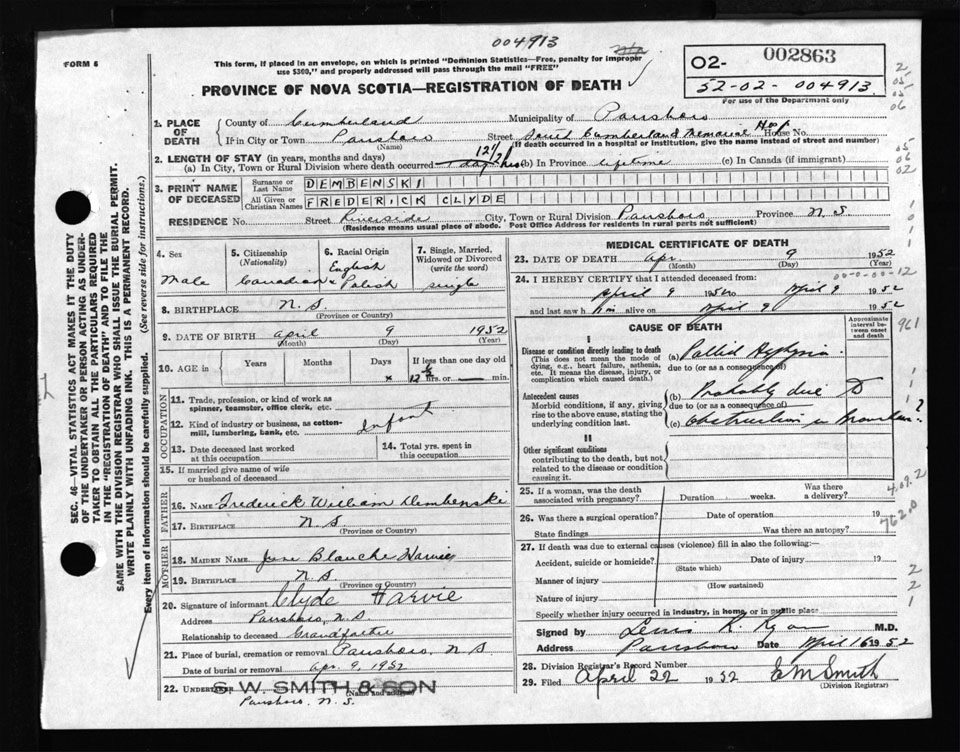 004913
n/a
FORM 6
This form, if placed in an envelope, on which is printed "Dominion Statistics—Free, penalty for improper
use $300," and properly addressed will pass through the mail "FREE"
O2-
002863
52-02- 004913
For use of the Department only
PROVINCE OF NOVA SCOTIA—REGISTRATION OF DEATH
1. PLACE OF DEATH
County of Cumberland Municipality of Parrsboro
If in City or Town Parrsboro Street South Cumberland Memorial Hosp House No.
(Name) (If death occurred in a hospital or institution, give the name instead of street and number)
2. LENGTH OF STAY (in years, months and days)
(a) In City, Town or Rural Division where death occurred 1 day 12 1/2 hrs (b) In Province lifetime (c) In Canada (if immigrant)
3. PRINT NAME OF DECEASED
Surname or Last Name DEMBENSKI
All Given or Christian Names FREDERICK CLYDE
RESIDENCE No. Street Riverside City, Town or Rural Division Parrsboro Province N.S.
(Residence means usual place of abode. Post Office Address for residents in rural parts not sufficient)
4. Sex
Male
5. Citizenship (Nationality)
Canadian
6. Racial Origin
English
x Polish
7. Single, Married, Widowed or Divorced (write the word)
single
8. BIRTHPLACE N.S.
(Province or Country)
9. DATE OF BIRTH April 9 1952
(Month) (Day) (Year)
10. AGE in Years Months Days If less than one day old
x 12 1/2 hrs. or min.
OCCUPATION
11. Trade, profession, or kind of work as spinner, teamster, office clerk, etc.
12. Kind of industry or business, as cotton-mill, lumbering, bank, etc.
Infant
13. Date deceased last worked at this occupation
14. Total yrs. spent in this occupation
15. If married give name of wife or husband of deceased
FATHER
16. NAME Frederick William Dembenski
17. BIRTHPLACE N.S.
(Province or Country)
MOTHER
18. MAIDEN NAME June Blanche Harvie
19. BIRTHPLACE N.S.
(Province or Country)
20. Signature of informant Clyde Harvie
Address Parrsboro, N.S.
Relationship to deceased Grandfather
21. Place of burial, cremation or removal Parrsboro, N.S.
Date of burial or removal Apr. 9, 1952
22. UNDERTAKER W. SMITH & SON
(Name and address)
Parrsboro, N.S.
MEDICAL CERTIFICATE OF DEATH
23. DATE OF DEATH Apr. 9 1952
(Month) (Day) (Year)
24. I HEREBY CERTIFY that I attended deceased from:
00-0-00-12
April 9 1952 to April 9 1952
and last saw him alive on April 9 1952
CAUSE OF DEATH
Approximate interval between onset and death
961
I
Disease or condition directly leading to death
(This does not mean the mode of dying, e.g., heart failure, asthenia, etc. It means the disease, injury, or complication which caused death.)
(a) Pallid Asphyxia
due to (or as a consequence of)
Antecedent causes
Morbid conditions, if any, giving rise to the above cause, stating the underlying condition last.
(b) Probably due to
due to (or as a consequence of)
(c) Obstruction in
II
Other significant conditions
contributing to the death, but not related to the disease or condition causing it.
25. If a woman, was the death associated with pregnancy? Duration weeks. Was there a delivery?
4.09.2
26. Was there a surgical operation? Date of operation 19
State findings Was there an autopsy?
762.0
27. If death was due to external causes (violence) fill in also the following:—
Accident, suicide or homicide? Date of injury 19
(State which)
Manner of injury
(How sustained)
Nature of injury
Specify whether injury occurred in industry, in home, or in public place
Signed by Lewis R. Ryan M.D.
Address Parrsboro Date April 16 1952
28. Division Registrar's Record Number
29. Filed April 22 1952 E M Smith
(Division Registrar)
SEC. 46 - VITAL STATISTICS ACT MAKES IT THE DUTY
OF THE UNDERTAKER OR PERSON ACTING AS UNDER-
TAKER TO OBTAIN ALL THE PARTICULARS REQUIRED
IN THE "REGISTRATION OF DEATH" AND TO FILE THE
SAME WITH THE DIVISION REGISTRAR WHO SHALL ISSUE THE BURIAL PERMIT.
WRITE PLAINLY WITH UNFADING INK. THIS IS A PERMANENT RECORD.
Every item of information should be carefully supplied. (See reverse side for instructions.)